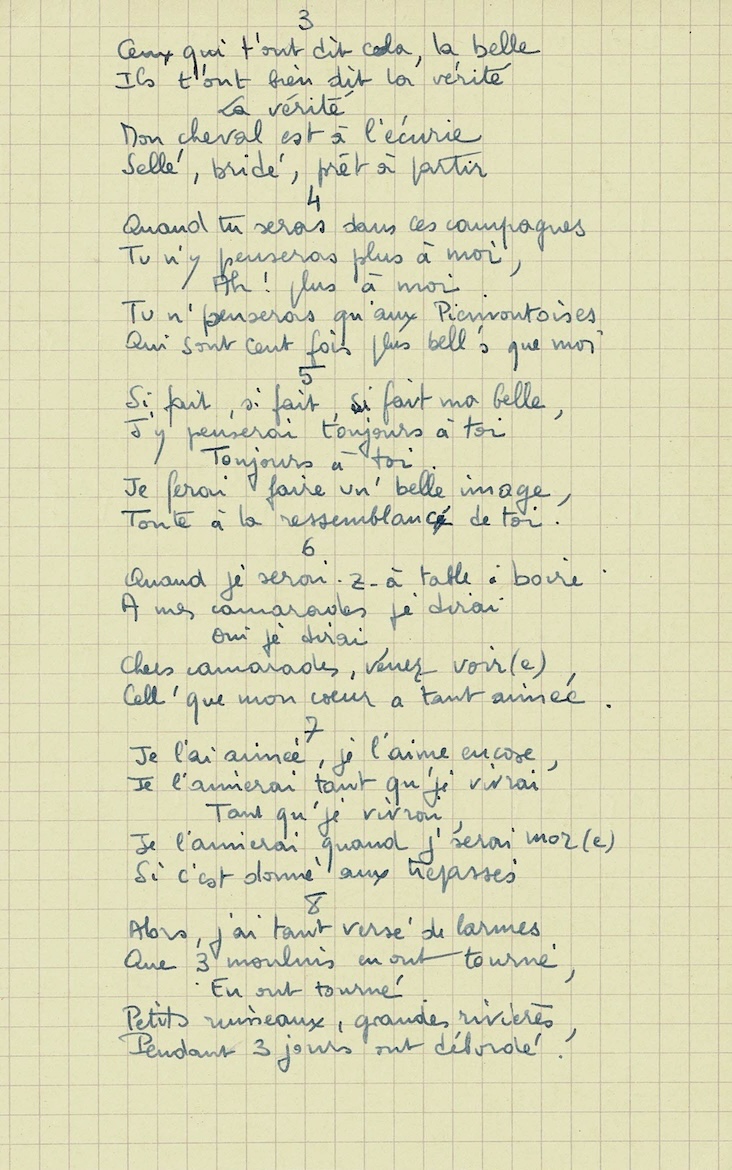 3
Ceux qui t'ont dit cela, la belle
Ils t'ont bien dit la vérité
La vérité
Mon cheval est à l'écurie
Sellé, bridé, prêt à partir
4
Quand tu seras dans ces campagnes
Tu n'y penseras plus à moi,
Ah ! plus à moi
Tu n'penseras qu'aux Piémontoises
Qui sont cent fois plus bell's que moi
5
Si fait, si fait, si fait ma belle,
J'y penserai toujours à toi
Toujours à toi.
Je ferai faire un' belle image,
Toute à la ressemblance de toi.
6
Quand je serai-z-à table à boire
A mes camarades je dirai
Oui je dirai
Chers camarades, venez voir(e)
Cell' que mon coeur a tant aimée.
7
Je l'ai aimée, je l'aime encore,
Je l'aimerai tant qu'je vivrai
Tant qu'je vivrai,
Je l'aimerai quand j'serai mor(e)
Si c'est donné aux trépassés
8
Alors, j'ai tant versé de larmes
Que 3 moulins en ont tourné,
En ont tourné
Petits ruisseaux, grandes rivières,
Pendant 3 jours ont débordé.